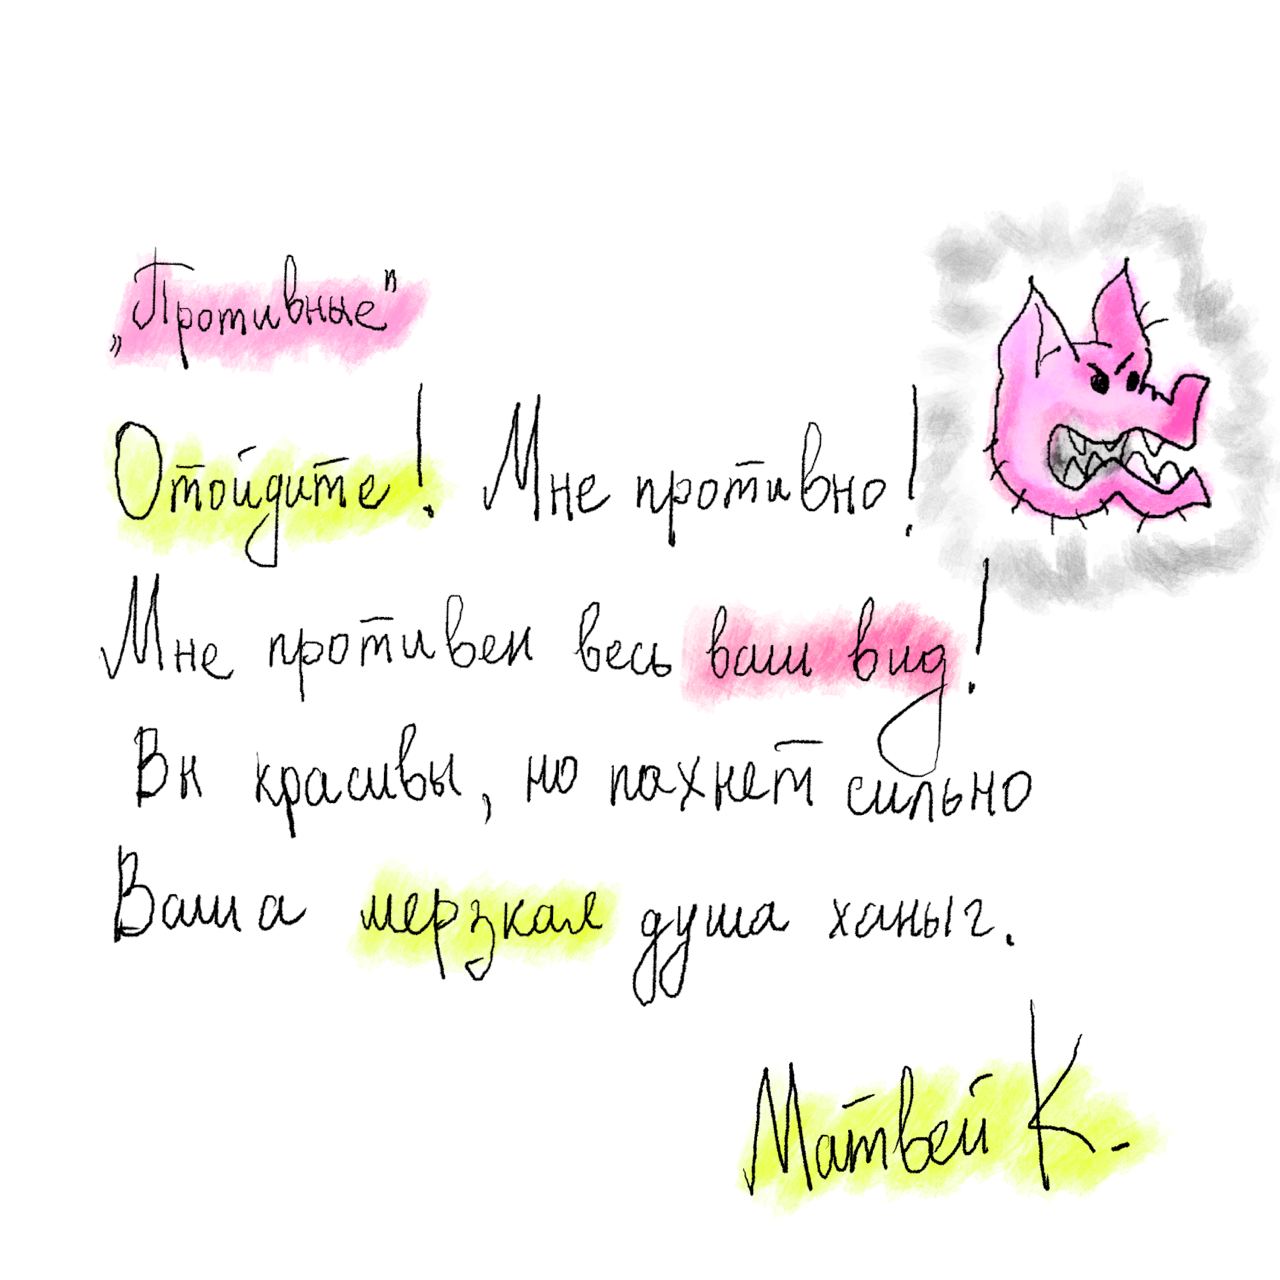 „Противные"
Отойдите! Мне противно!
Мне противен весь ваш вид!
Вы красивы, но пахнет сильно
Ваша мерзкая душа ханыг.
Матвей К.